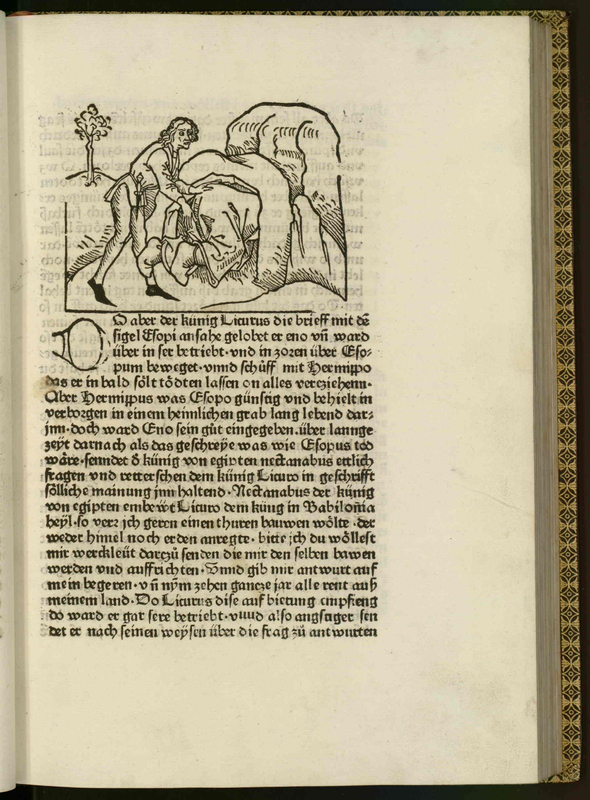 DO aber der künig Licurus die brieff mit dē
sigel Esopi ansahe gelobet er eno vñ ward
über in ser betriebt · vnd in zoren über Eso-
pum beweget · vnnd schůff mit Hermippo
das er in bald sölt tödten lassen on alles verziehenn ·
Aber Hermippus was Esopo günstig vnd behielt in
verborgen in einem heimlichen grab lang lebend dar-
jnn · doch ward Eno sein gůt eingegeben · über lannge
zeyt darnach als das geschreye was wie Esopus tod
wäre · senndet d künig von egipten nectanabus ettlich
fragen vnd retterschen dem künig Licuro in geschrifft
sölliche mainung jnn haltend · Nectanabus der künig
von egipten embewt Licuro dem küng in Babilonia
heyl · so verr jch geren einen thuren bauwen wölte · der
weder himel noch erden anregte · bitte jch du wöllest
mir werckleüt darczů senden die mir den selben bawen
werden vnd auffrichten · Vnnd gib mir antwurt auff
mein begeren · vñ nym zehen gancze jar alle rent auß
meinem land · Do Licurus dise auf bietung empfieng
do ward er gar sere betriebt · vnnd also angstiger sen
det er nach seinen weysen über die frag zů antwurten